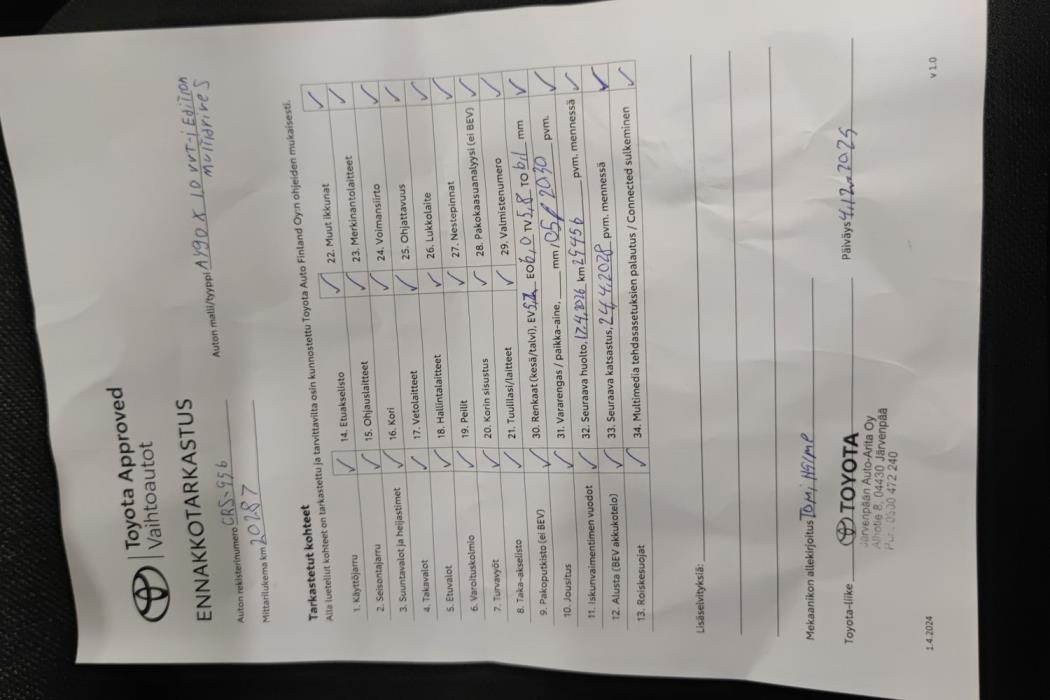 Toyota Approved
Vaihtoautot
ENNAKKOTARKASTUS
Auton rekisterinumero CRS-996
Auton malli/tyyppi AYGO X 1.0 VVT-i Edition
Multidrive S
Mittarilukema km 20287
Tarkastetut kohteet
Alla luetellut kohteet on tarkastettu ja tarvittavilta osin kunnostettu Toyota Auto Finland Oy:n ohjeiden mukaisesti.
1. Käyttöjarru ✓
2. Seisontajarru ✓
3. Suuntavalot ja heijastimet ✓
4. Takavalot ✓
5. Etuvalot ✓
6. Varoituskolmio ✓
7. Turvavyöt ✓
8. Taka-akselisto ✓
9. Pakoputkisto (ei BEV) ✓
10. Jousitus ✓
11. Iskunvaimentimen vuodot ✓
12. Alusta (BEV akkukotelo) ✓
13. Roiskesuojat ✓
14. Etuakselisto ✓
15. Ohjauslaitteet ✓
16. Kori ✓
17. Vetolaitteet ✓
18. Hallintalaitteet ✓
19. Peilit ✓
20. Korin sisustus ✓
21. Tuulilasi/laitteet ✓
22. Muut ikkunat ✓
23. Merkinantolaitteet ✓
24. Voimansiirto ✓
25. Ohjattavuus ✓
26. Lukkolaite ✓
27. Nestepinnat ✓
28. Pakokaasuanalyysi (ei BEV) ✓
29. Valmistenumero ✓
30. Renkaat (kesä/talvi), EV EO 6,0 TV 5,8 TO 6,1 mm ✓
31. Vararengas / paikka-aine, mm / 2030 pvm. ✓
32. Seuraava huolto, 17.4.2026 km 29456 pvm. mennessä ✓
33. Seuraava katsastus, 24.4.2028 pvm. mennessä ✓
34. Multimedia tehdasasetuksien palautus / Connected sulkeminen ✓
Lisäselvityksiä:
Mekaanikon allekirjoitus Tomi
Toyota-liike TOYOTA
Päiväys 4.12.2025
Järvenpään Auto-Arita Oy
Alhotie 8, 04430 Järvenpää
1.4.2024
v 1.0